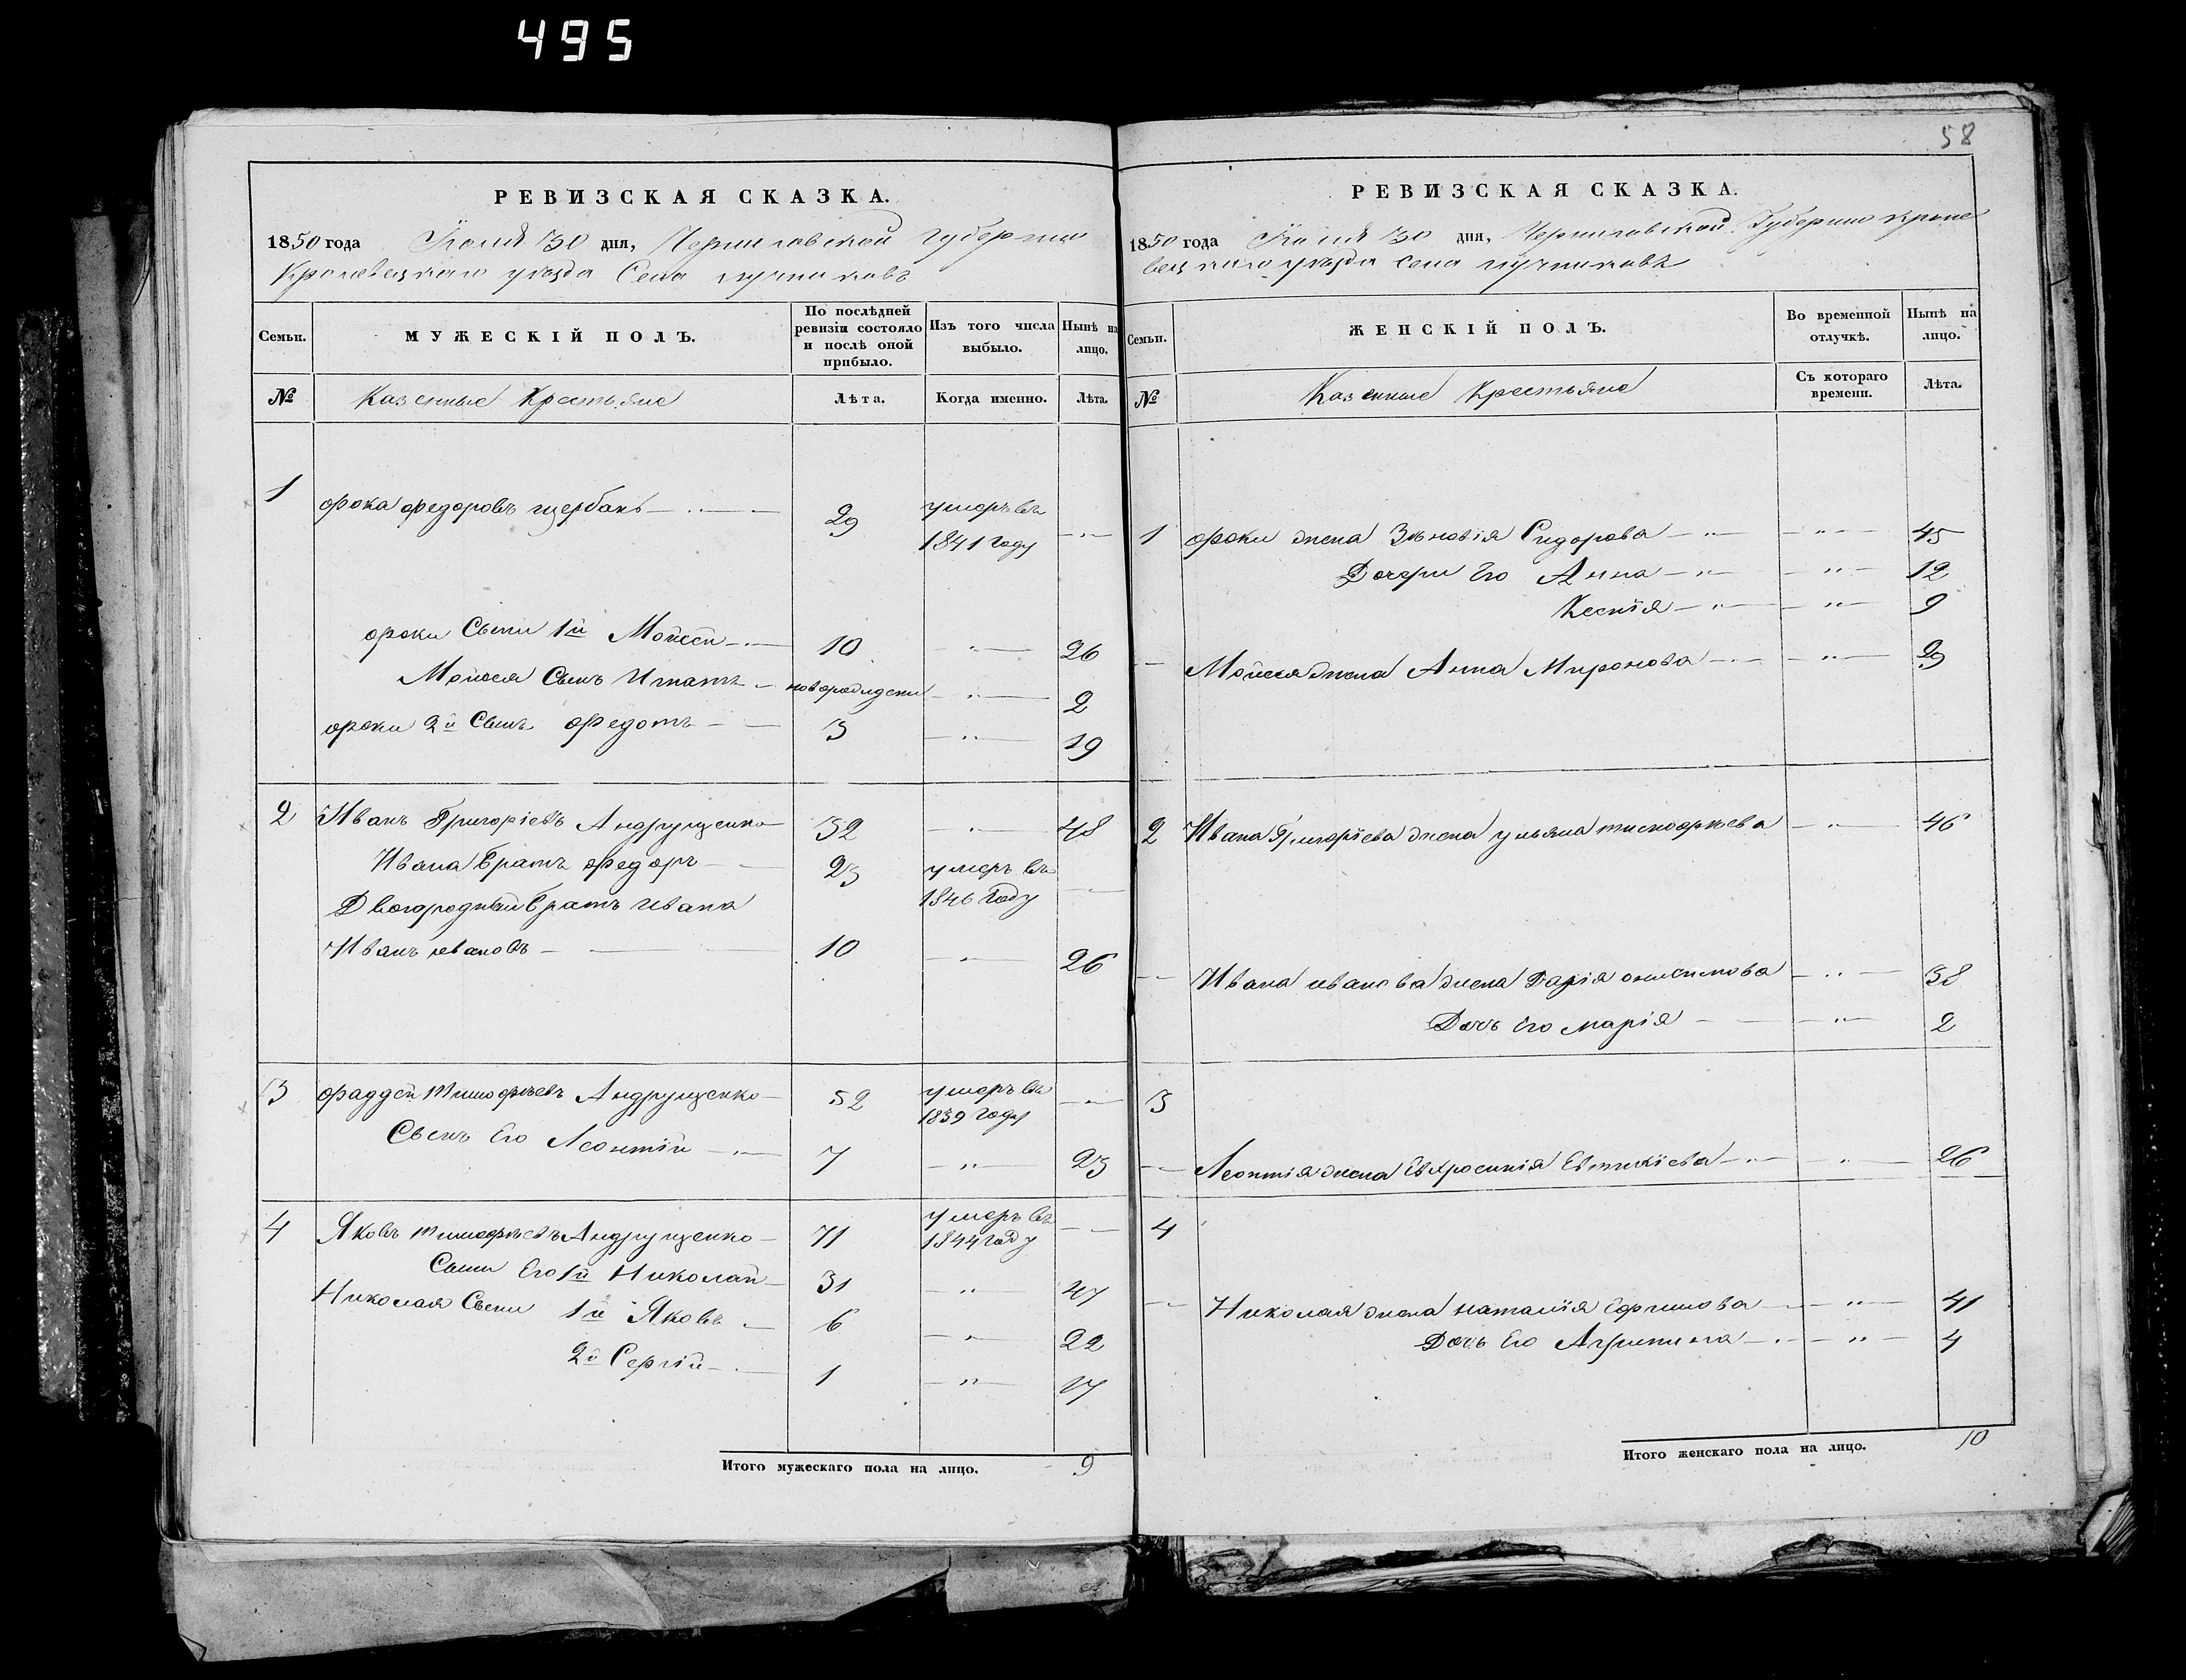 495
58
РЕВИЗСКАЯ СКАЗКА.
1850 года Іюля 30 дня, Черниговской губерніи
Кролевецкаго уезда Села Лучниковъ
Семьи. МУЖЕСКІЙ ПОЛЪ. По послѣдней ревизіи состояло и послѣ оной прибыло. Изъ того числа выбыло. Нынѣ на лицо.
№ Казенные Крестьяне Лѣта. Когда именно. Лѣта.
1 Фока Федоровъ Щербакъ 29 умеръ въ
1841 году
Фоки Сыны 1й Мойсей 10 26
Мойсея Сынъ Игнатъ новорожденъ 2
Фоки 2й Сынъ Федотъ 3 19
2 Иванъ Григоріевъ Андрущенко 32 48
Ивана братъ Федоръ 23 умеръ въ
1846 году
Двоюродный братъ Ивана
Иванъ Ивановъ 10 26
3 Фаддей Тимофѣевъ Андрущенко 52 умеръ въ
1839 году
Сынъ Его Леонтій 7 23
4 Яковъ Тимофѣевъ Андрущенко 71 умеръ въ
1844 году
Сыны Его 1й Николай 31 47
Николая Сыны 1й Яковъ 6 22
2й Сергій 1 17
Итого мужескаго пола на лицо. 9
РЕВИЗСКАЯ СКАЗКА.
1850 года Іюля 30 дня, Черниговской Губерніи Кроле
вецкаго уезда села Лучниковъ
Семьи. ЖЕНСКІЙ ПОЛЪ. Во временной отлучкѣ. Нынѣ на лицо.
№ Казенные Крестьяне Съ котораго времени. Лѣта.
1 Фоки жена Зѣновія Сидорова 45
Дочери Его Анна 12
Ксенія 9
Мойсея жена Анна Миронова 29
2 Ивана Григоріева жена Ульяна Тимофѣева 46
Ивана Иванова жена Дарія Онисимова 38
Дочь Его Марія 2
3
Леонтія жена Евфросинія Евтихіева 26
4
Николая жена Наталія Ефимова 41
Дочь Его Агрипина 4
Итого женскаго пола на лицо. 10